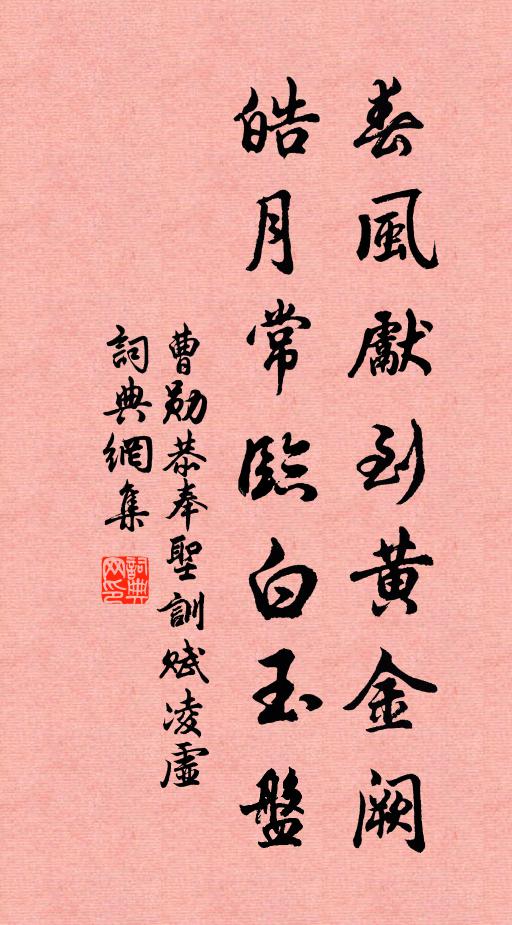 春風獻到黃金阙
皓月常臨白玉盤
曹勛恭奉聖訓賦凌虛
詞典網集
詞典网印